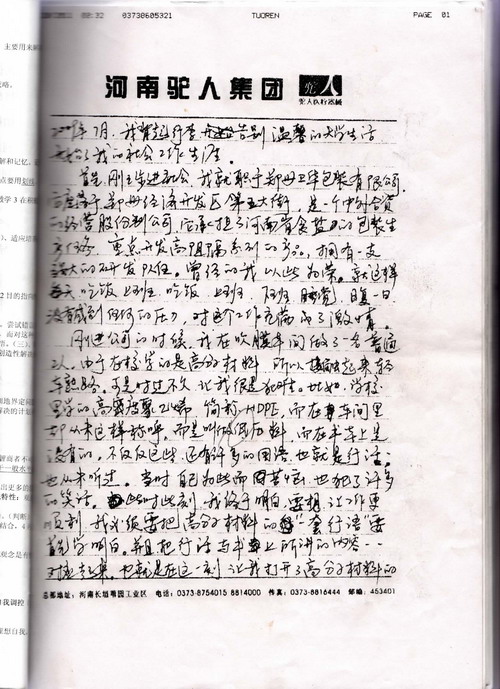 08:32 03730605321 TUOREN PAGE 01
河南驼人集团 驼人
驼人医疗器械
2009年7月,我背起行李告别温馨的大学生活
开始了我的社会工作生涯。
首先刚步进社会,我就职于郑州卫华包装有限公司,
郑州经济开发区第五大街,是一个中外合资
的经营股份制公司,承担了河南省食盐的包装生
产任务,重点开发高阻隔系列的产品,拥有一支
强大的研发队伍。曾经的我以此为荣。就这样
每天吃饭 上班 吃饭 上班 下班 睡觉,日复一日
没有感到任何的压力,对这个工作充满了激情。
刚进公司的时候,我在吹膜车间做了一名普通
工人,由于在校学的是高分子材料,所以接触起来较
为熟路。可是时过不久,让我很是。比如,学校
里学的高密度聚乙烯,简称HDPE,而在车间里
却从来没这样称呼。而是叫做低压料,而在书本上是
没有的,不仅仅这些,还有许多的困惑,也就是行话,
也从未听过。当时自己为此而苦恼,也犯了许多
的笑话。此时此刻,我终于明白,要想让工作更
顺利,我必须要把高分子材料的一套行话要
首先学明白。并且把行话与书上所讲的内容一一
对应起来。也就是在这一刻,让我打开了高分子材料的
总部地址:河南长垣丁栾工业区 电话:0373-8754015 8814000 传真:0373-8816444 邮编:453401